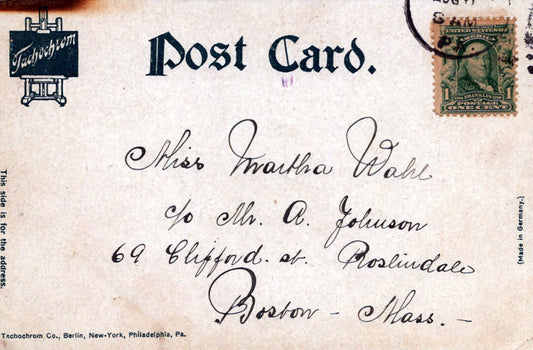 Tachochrom
Post Card.
8 AM
UNITED STATES OF
AMERICA
FRANKLIN
POSTAGE
1 ONE CENT 1
Miss Martha Wahl
c/o Mr. A. Johnson
69 Clifford. st. Roslindale
Boston - Mass. -
This side is for the address.
(Made in Germany.)
Tachochrom Co., Berlin, New-York, Philadelphia, Pa.